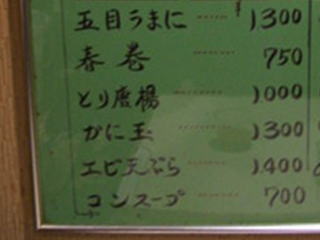 五目うまに 1300
春巻 750
とり唐揚 1.000
かに玉 1300
エビ天ぷら 1.400
コンスープ 700